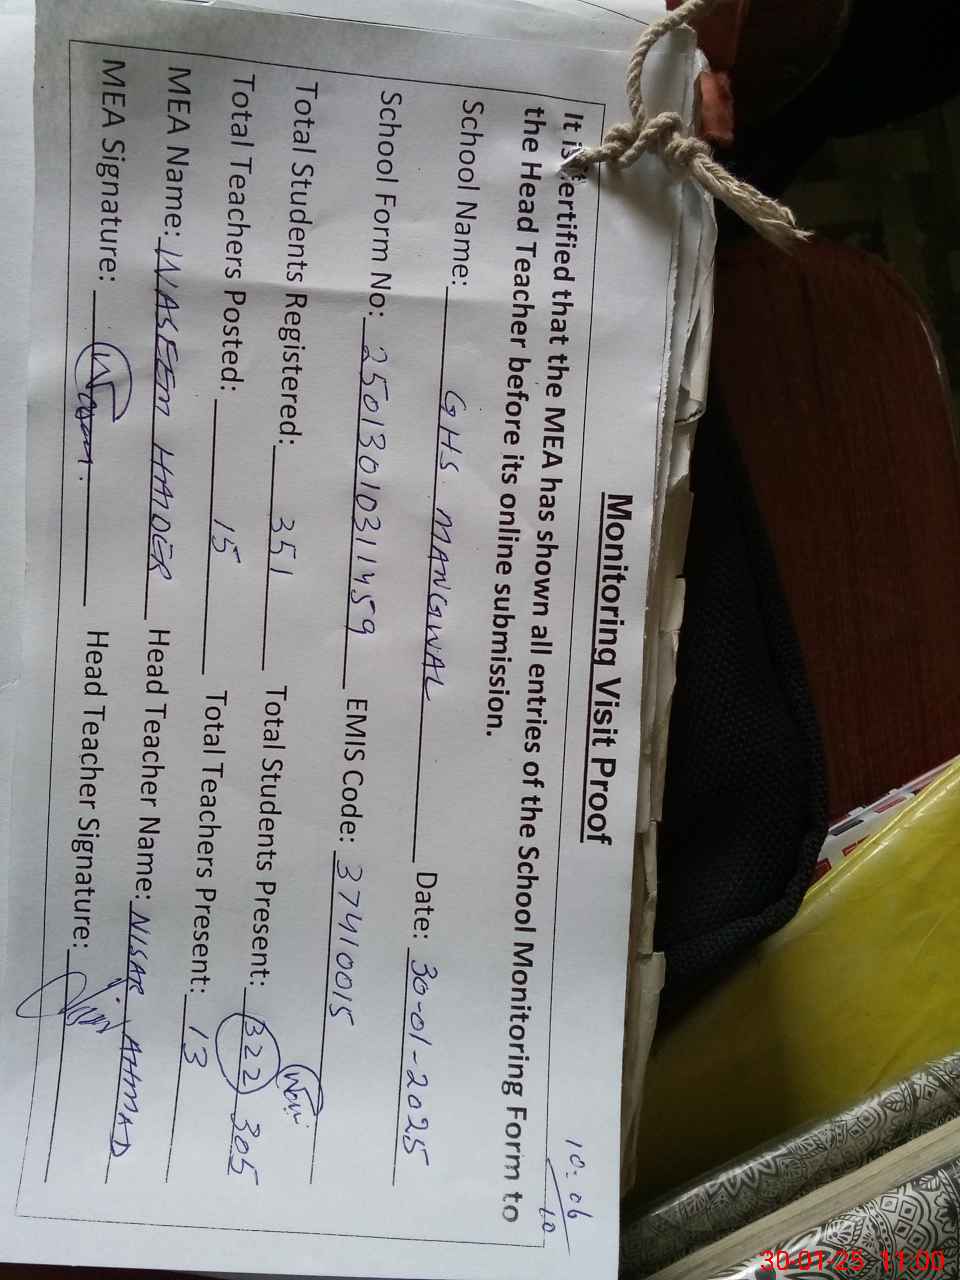 10:06
10
Monitoring Visit Proof
It is certified that the MEA has shown all entries of the School Monitoring Form to
the Head Teacher before its online submission.
School Name: GHS MANGWAL Date: 30-01-2025
School Form No: 25013010311459 EMIS Code: 37410015
Total Students Registered: 351 Total Students Present: 322 305
Total Teachers Posted: 15 Total Teachers Present: 13
MEA Name: WASEEM HAIDER Head Teacher Name: NISAR AHMAD
MEA Signature: Head Teacher Signature:
30-01-25 11:00